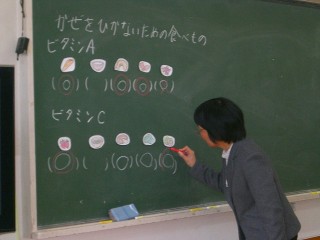 かぜをひかないための食べもの
ビタミンA
(○)( )(○)(○)(○)
ビタミンC
(○)( )(○)(○)(○)